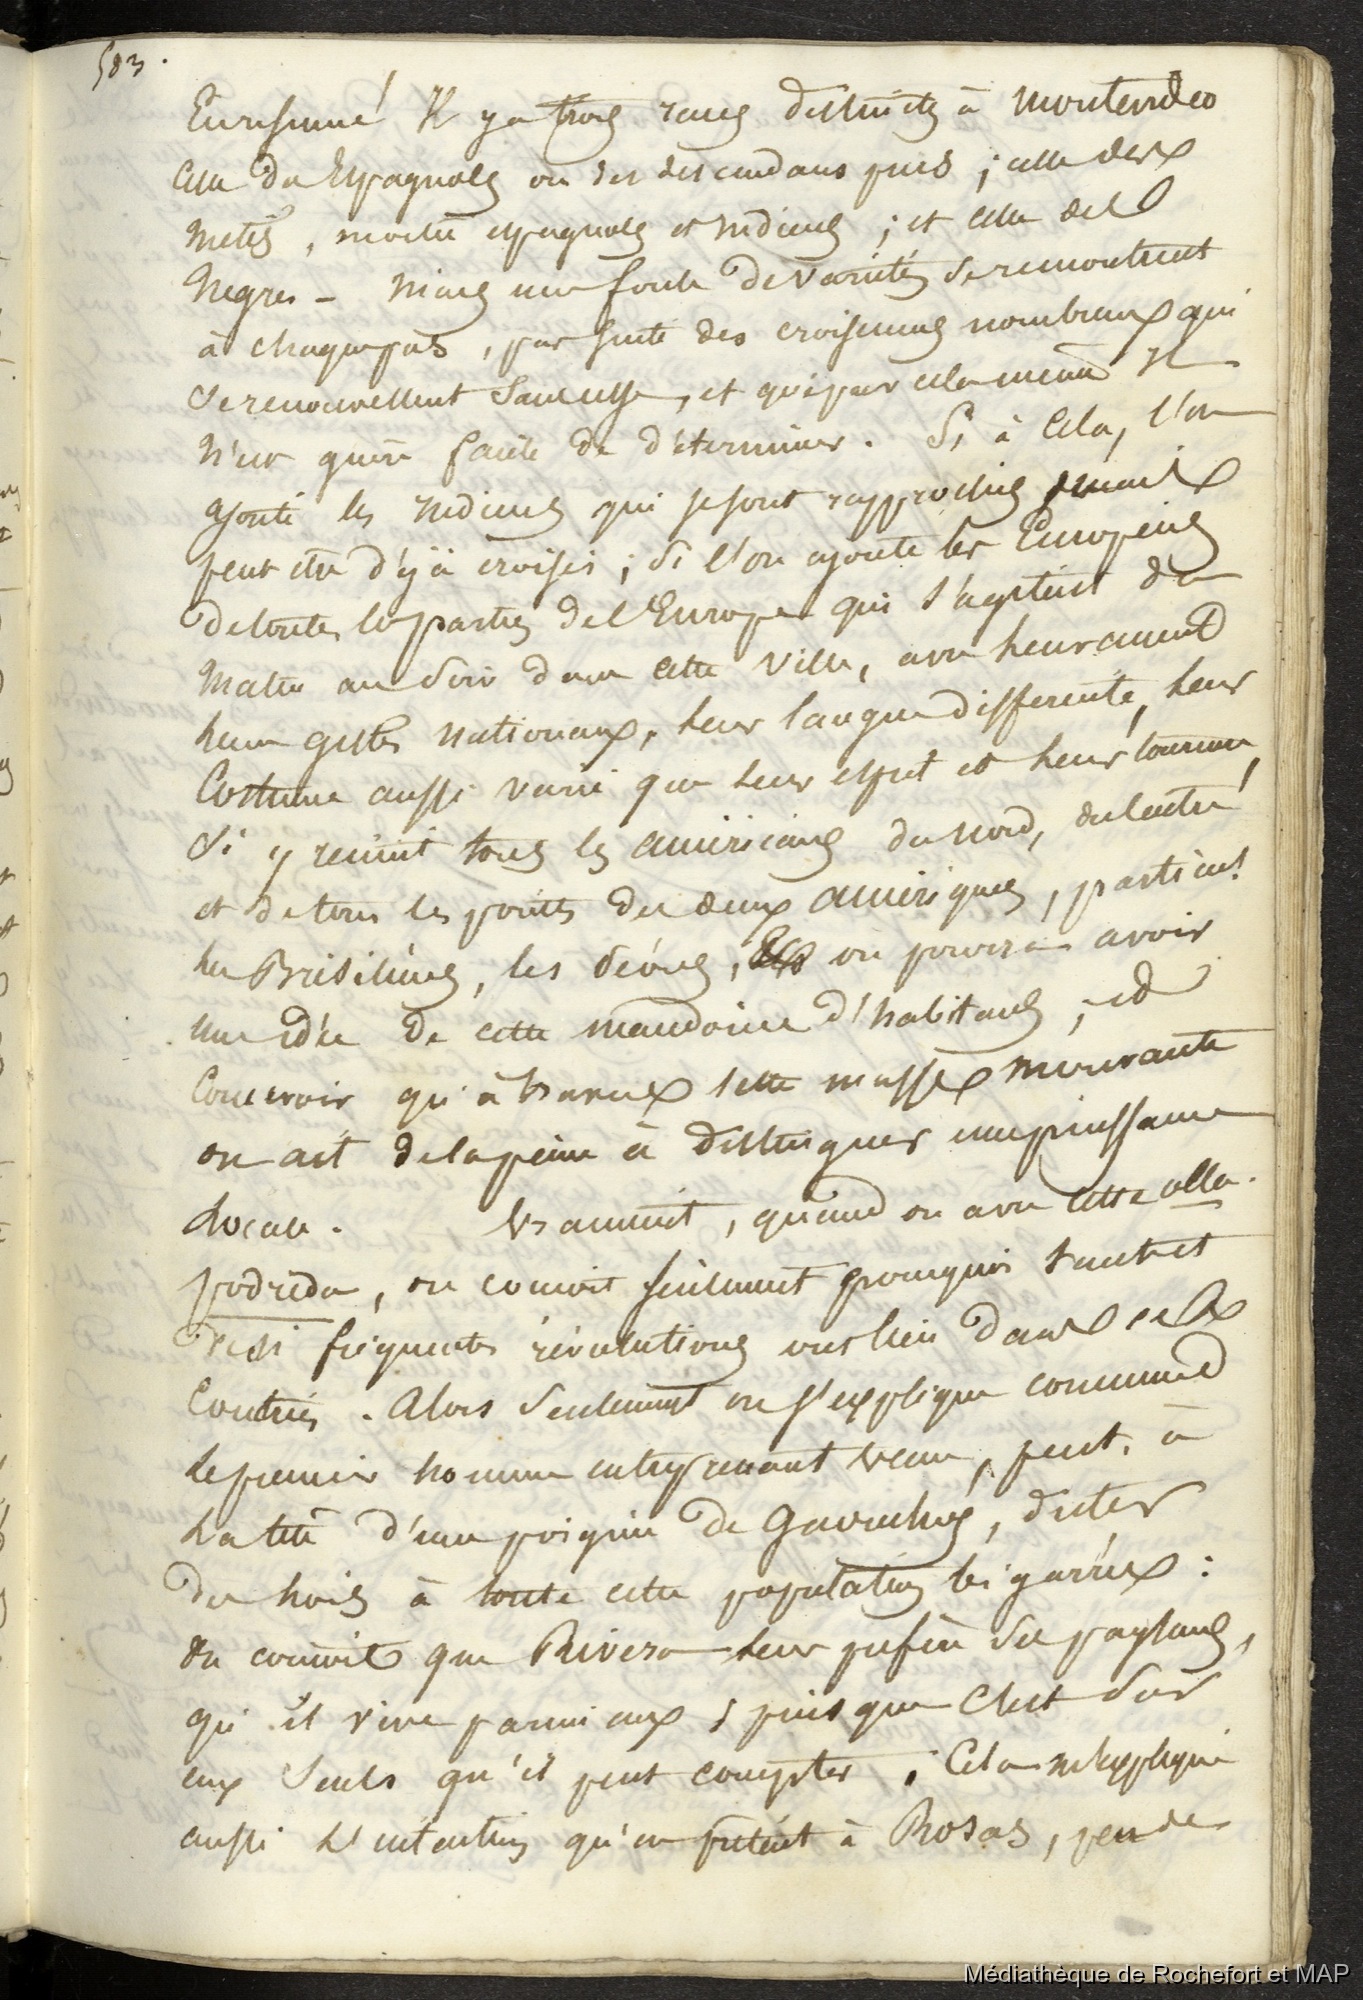 583.
En résumé Il y a trois races distinctes à Montevideo
Celle des Espagnols ou des descendans purs ; celle des
Métis, moitié espagnols et Indiens ; et celle des
Nègres — Mais une foule de variétés se rencontrent
à chaque pas, par suite des croisemens nombreux qui
se renouvellent sans cesse, et que par cela même il
n'est guère facile de déterminer. Si à cela, l'on
ajoute les Indiens qui se sont rapprochés, mais
peut être déjà croisés ; si l'on ajoute les Européens
de toutes les parties de l'Europe qui s'agitent du
Matin au Soir dans cette ville, avec leur accent
leurs gestes nationaux, leur langue differente, leur
Costume aussi varié que leur esprit et leur tournure,
Si y réunit tous les américains du nord, du centre
et de tous les points des deux amériques, particult
les Brésiliens, les on pourra avoir
une idée de cette macédoine d'habitans, et
Concevoir qu'à travers cette masse mouvante
on ait de la peine à distinguer une puissance
locale. Vraiment, quand on a vu cette olla-
podrida, on conçoit seulement pourquoi tant et
de si fréquentes révolutions ont lieu dans ces
Contrées. Alors seulement on s'explique comment
le premier homme entreprenant venu, peut, à
la tête d'une poignée de Gauchos, dicter
des lois à toute cette population bigarrée :
On conçoit que Rivera leur préfère ses paysans,
qu'il vive parmi eux, puisque c'est sur
eux seuls qu'il peut compter ; Cela m'explique
aussi l'intention qu'on prétait à Rosas, peu de